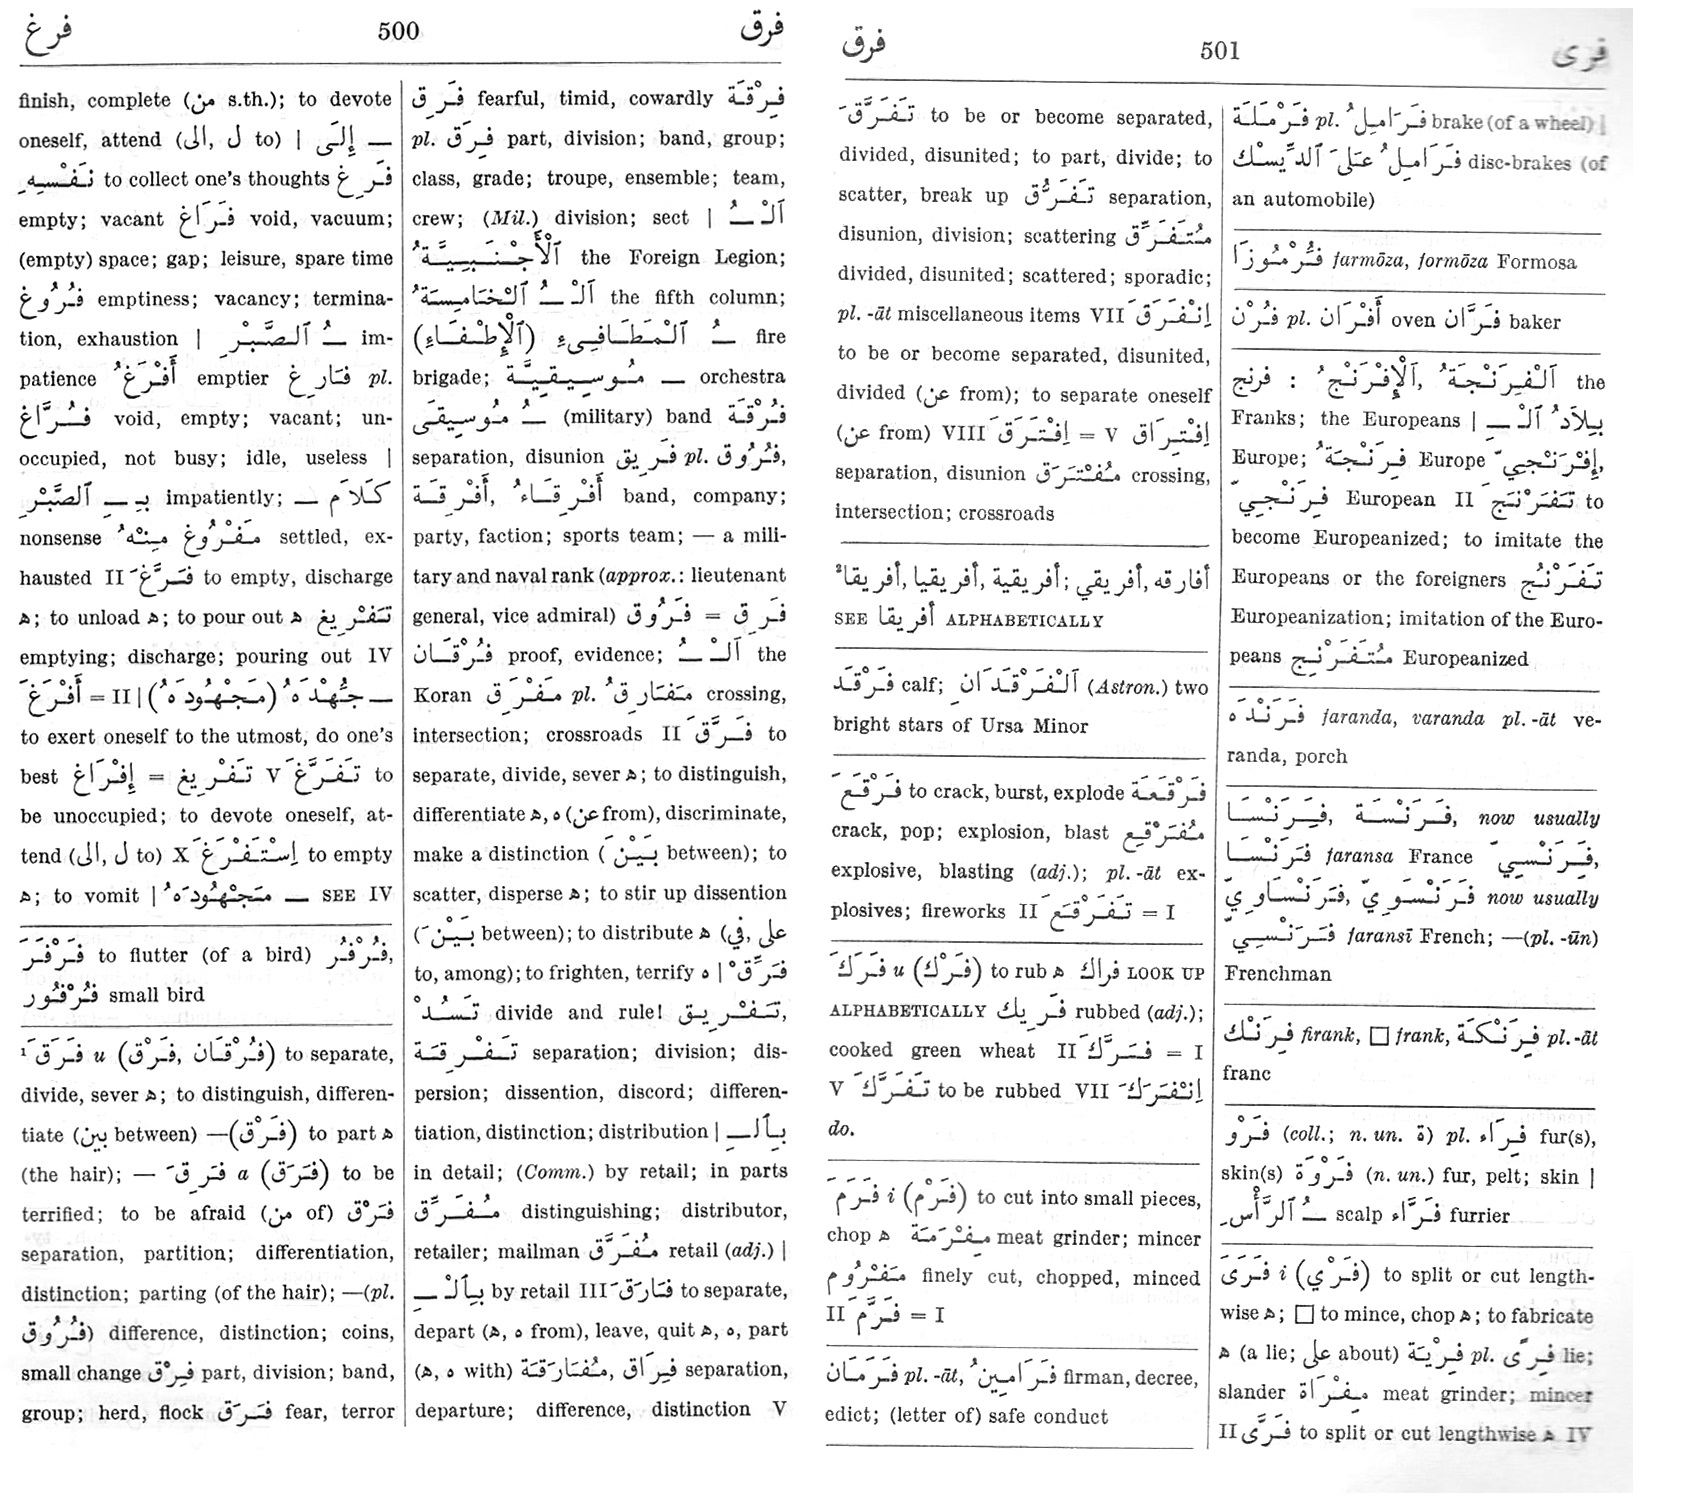 فرغ 500 فرق
finish, complete (من s.th.); to devote
oneself, attend (ل ,الى to) | — إِلَى
نَفْسِهِ to collect one's thoughts فَرِغ
empty; vacant فَرَاغ void, vacuum;
(empty) space; gap; leisure, spare time
فُرُوغ emptiness; vacancy; termina-
tion, exhaustion | ـُ ٱلصَّبْرِ im-
patience أَفْرَغُ emptier فَارِغ pl.
فُرَّاغ void, empty; vacant; un-
occupied, not busy; idle, useless |
بِـ ـِ ٱلصَّبْرِ impatiently; — كَلَام
nonsense مَفْرُوغ مِنْهُ settled, ex-
hausted II فَرَّغَ to empty, discharge
ه; to unload ه; to pour out ه تَفْرِيغ
emptying; discharge; pouring out IV
أَفْرَغَ = II | (مَجْهُودَهُ) جُهْدَهُ —
to exert oneself to the utmost, do one's
best إِفْرَاغ = تَفْرِيغ V تَفَرَّغَ to
be unoccupied; to devote oneself, at-
tend (ل ,الى to) X اِسْتَفْرَغَ to empty
ه; to vomit | مَجْهُودَهُ — SEE IV
فَرْفَرَ to flutter (of a bird) فُرْفُر,
فُرْفُور small bird
¹ فَرَقَ u (فَرْق, فُرْقَان) to separate,
divide, sever ه; to distinguish, differen-
tiate (بين between) —(فَرْق) to part ه
(the hair); — فَرِقَ a (فَرَق) to be
terrified; to be afraid (من of) فَرْق
separation, partition; differentiation,
distinction; parting (of the hair); —(pl.
فُرُوق) difference, distinction; coins,
small change فِرْق part, division; band,
group; herd, flock فَرَق fear, terror
فَرِق fearful, timid, cowardly فِرْقَة
pl. فِرَق part, division; band, group;
class, grade; troupe, ensemble; team,
crew; (Mil.) division; sect | ٱلْـ ـُ
ٱلْأَجْنَبِيَّةُ the Foreign Legion;
ٱلْـ ـُ ٱلْخَامِسَةُ the fifth column;
ـُ ٱلْمَطَافِىءِ (ٱلْإِطْفَاءِ) fire
brigade; — مُوسِيقِيَّة orchestra
ـُ مُوسِيقَى (military) band فُرْقَة
separation, disunion فَرِيق pl. فُرُوق,
أَفْرِقَاءُ, أَفْرِقَة band, company;
party, faction; sports team; — a mili-
tary and naval rank (approx.: lieutenant
general, vice admiral) فَرُوق = فَرِق
فُرْقَان proof, evidence; ٱلْـ ـُ the
Koran مَفْرِق pl. مَفَارِقُ crossing,
intersection; crossroads II فَرَّقَ to
separate, divide, sever ه; to distinguish,
differentiate ه, ه (عن from), discriminate,
make a distinction (بَيْنَ between); to
scatter, disperse ه; to stir up dissention
(بَيْنَ between); to distribute ه (على ,في
to, among); to frighten, terrify ه | فَرِّقْ
تَسُدْ divide and rule! تَفْرِيق,
تَفْرِقَة separation; division; dis-
persion; dissention, discord; differen-
tiation, distinction; distribution | بِٱلْـ ـِ
in detail; (Comm.) by retail; in parts
مُفَرِّق distinguishing; distributor,
retailer; mailman مُفَرَّق retail (adj.) |
بِٱلْـ ـِ by retail III فَارَقَ to separate,
depart (ه, ه from), leave, quit ه, ه, part
(ه, ه with) فِرَاق, مُفَارَقَة separation,
departure; difference, distinction V
فرق 501 فرى
تَفَرَّقَ to be or become separated,
divided, disunited; to part, divide; to
scatter, break up تَفَرُّق separation,
disunion, division; scattering مُتَفَرِّق
divided, disunited; scattered; sporadic;
pl. -āt miscellaneous items VII اِنْفَرَقَ
to be or become separated, disunited,
divided (عن from); to separate oneself
(عن from) VIII اِفْتَرَقَ = V اِفْتِرَاق
separation, disunion مُفْتَرَق crossing,
intersection; crossroads
² أفارقه, أفريقي; أفريقية, أفريقيا, أفريقا
SEE أفريقا ALPHABETICALLY
فَرْقَد calf; ٱلْفَرْقَدَانِ (Astron.) two
bright stars of Ursa Minor
فَرْقَعَ to crack, burst, explode فَرْقَعَة
crack, pop; explosion, blast مُفَرْقِع
explosive, blasting (adj.); pl. -āt ex-
plosives; fireworks II تَفَرْقَعَ = I
فَرَكَ u (فَرْك) to rub ه فراك LOOK UP
ALPHABETICALLY فَرِيك rubbed (adj.);
cooked green wheat II فَرَّكَ = I
V تَفَرَّكَ to be rubbed VII اِنْفَرَكَ
do.
فَرَمَ i (فَرْم) to cut into small pieces,
chop ه مِفْرَمَة meat grinder; mincer
مَفْرُوم finely cut, chopped, minced
II فَرَّم = I
فَرَمَان pl. -āt, فَرَامِينُ firman, decree,
edict; (letter of) safe conduct
فَرْمَلَة pl. فَرَامِلُ brake (of a wheel) |
فَرَامِلُ عَلَى ٱلدِّيسْك disc-brakes (of
an automobile)
فُرْمُوزَا farmōza, formōza Formosa
فُرْن pl. أَفْرَان oven فَرَّان baker
فرنج : ٱلْإِفْرَنْجُ, ٱلْفِرَنْجَةُ the
Franks; the Europeans | بِلَادُ ٱلْـ ـِ
Europe; فِرَنْجَةُ Europe إِفْرَنْجِيّ,
فِرَنْجِيّ European II تَفَرْنَجَ to
become Europeanized; to imitate the
Europeans or the foreigners تَفَرْنُج
Europeanization; imitation of the Euro-
peans مُتَفَرْنِج Europeanized
فَرَنْدَه faranda, varanda pl. -āt ve-
randa, porch
فِرَنْسَا, فَرَنْسَة, now usually
فَرَنْسَا faransa France فِرَنْسِيّ,
فَرَنْسَوِيّ, فَرَنْسَاوِيّ now usually
فَرَنْسِيّ faransī French; —(pl. -ūn)
Frenchman
فِرَنْك firank, □ frank, فِرَنْكَة pl. -āt
franc
فَرْو (coll.; n. un. ة) pl. فِرَاء fur(s),
skin(s) فَرْوَة (n. un.) fur, pelt; skin |
ـُ ٱلرَّأْسِ scalp فَرَّاء furrier
فَرَى i (فَرْي) to split or cut length-
wise ه; □ to mince, chop ه; to fabricate
ه (a lie; على about) فِرْيَة pl. فِرًى lie;
slander مِفْرَاة meat grinder; mincer
II فَرَّى to split or cut lengthwise ه IV